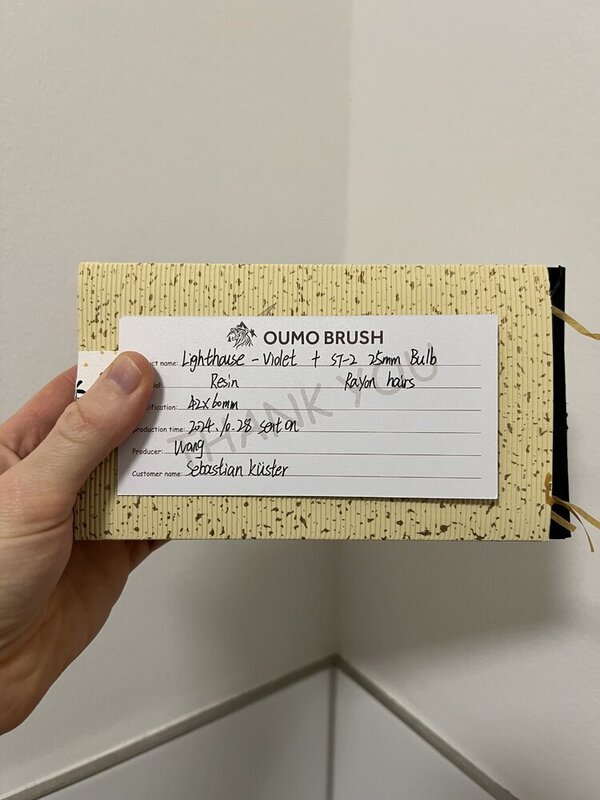 OUMO BRUSH
ct name: Lighthouse - Violet + ST-2 25mm Bulb
ial: Resin Rayon hairs
ification: 42x60mm
production time: 2024.10.28 sent on
Producer: Wang
Customer name: Sebastian Küster
THANK YOU